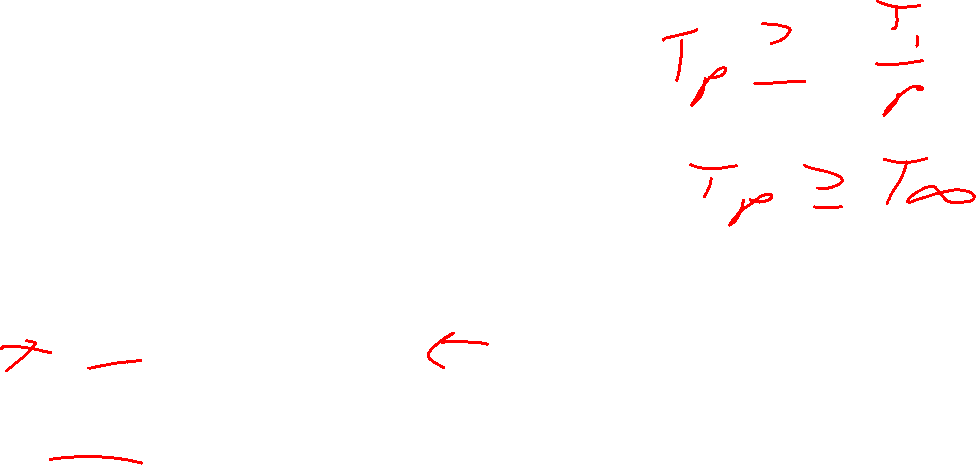 T_p ≥ T_1 / p
T_p ≥ T_∞
→ —
←
—